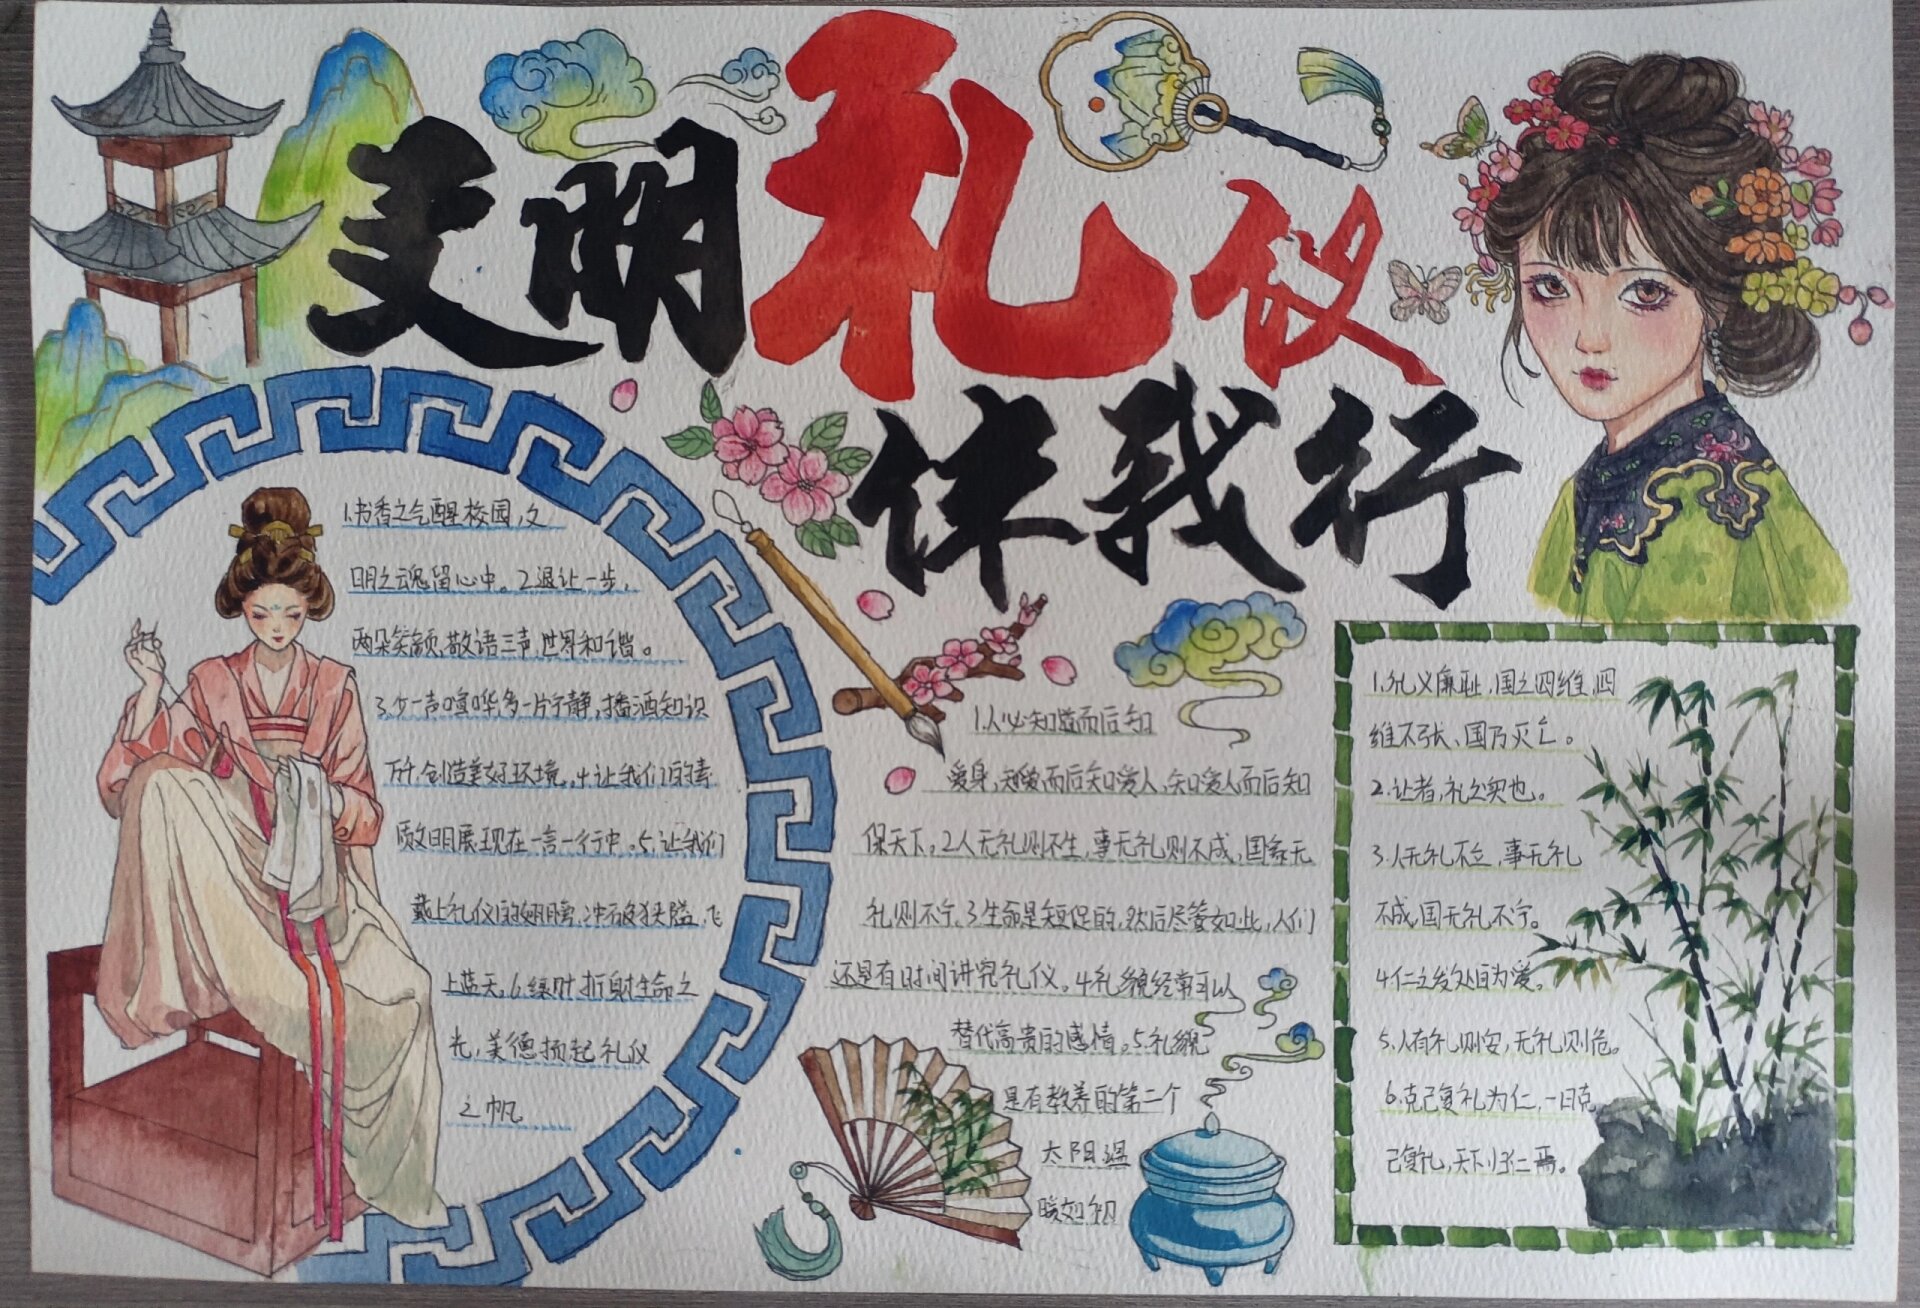 文明礼仪
伴我行
1.书香之气醒校园,文
明之魂留心中。2.退让一步,
两朵笑颜,敬语三声,世界和谐。
3.少一声喧哗,多一片宁静,播洒知识
万千,创造美好环境。4.让我们的素
质文明展现在一言一行中。5.让我们
戴上礼仪的翅膀,冲破狭隘,飞
上蓝天。6.绿叶折射生命之
光,美德扬起礼仪
之帆
1.人必知道而后知
爱身,知爱而后知爱人,知爱人而后知
保天下。2人无礼则不生,事无礼则不成,国家无
礼则不宁。3.生命是短促的,然后尽管如此,人们
还是有时间讲究礼仪。4.礼貌经常可以
替代高贵的感情。5.礼貌
是有教养的第二个
太阳温
暖如初
1.礼义廉耻,国之四维,四
维不张,国乃灭亡。
2.让者,礼之实也。
3.人无礼不立,事无礼
不成,国无礼不宁。
4.仁之发处自为爱。
5.人有礼则安,无礼则危。
6.克己复礼为仁,一日克
己复礼,天下归仁焉。